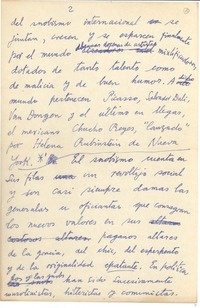 2
del snobismo internacional se
juntan, crecen y se esparcen
por el mundo algunas especies de artistas mixtificadores,
dotados de tanto talento como
de malicia y de buen humor. A este
mundo pertenecen Picasso, Salvador Dalí,
Van Dongen y el último en llegar,
el mexicano Chucho Reyes, "lanzado"
por Helena Rubinstein de Nueva
York. El snobismo cuenta en
sus filas un prestigio social
y son casi siempre damas las
generalas u oficiantas que consagran
los nuevos valores en sus
altares paganos altares
de la gracia, del chic, del esperpento
y de la originalidad epatante. En política,
los han sido sucesivamente
mussolinistas, hitleristas y comunistas.